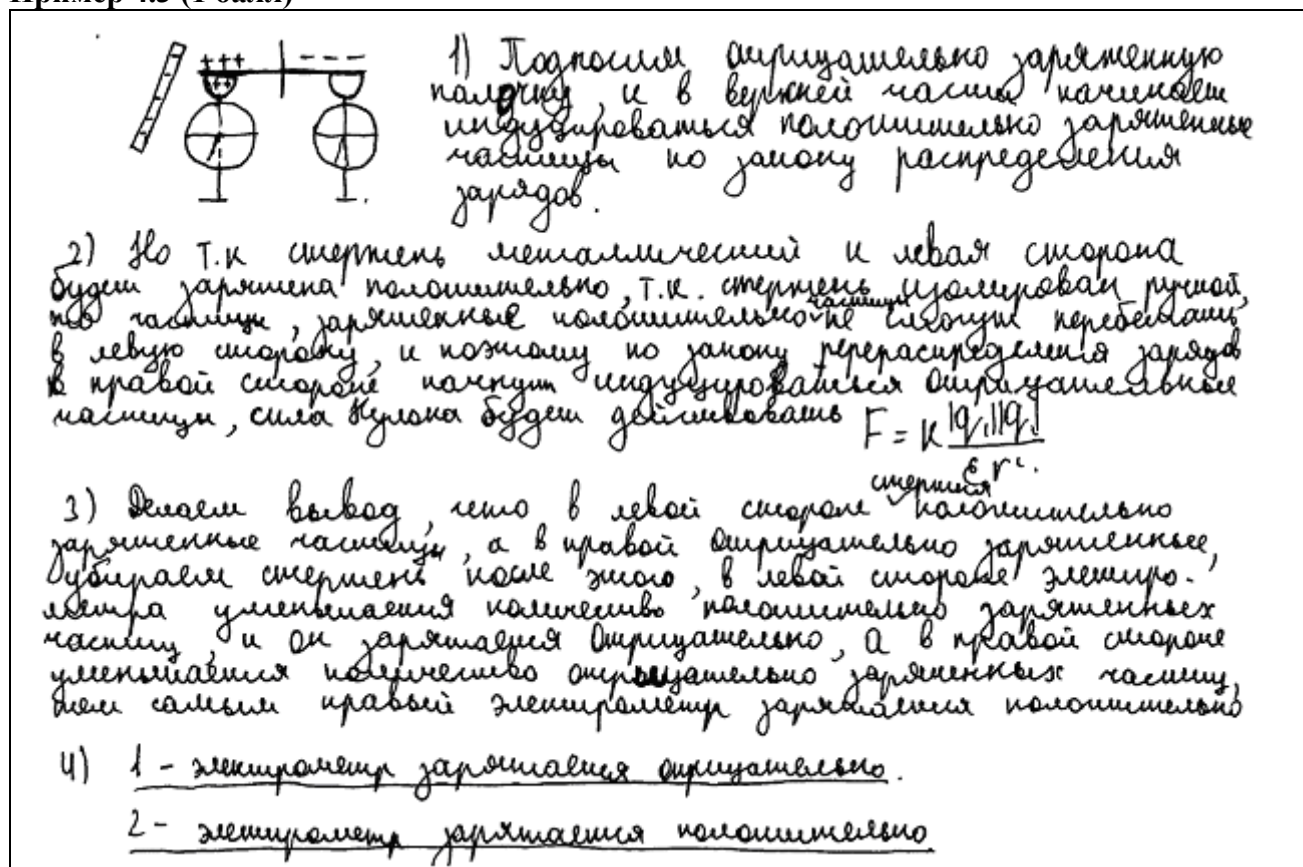 1) Подносим отрицательно заряженную
палочку, и в верхней части начинает
индуцироваться положительно заряженные
частицы по закону распределения
зарядов.
2) Но т.к стержень металлический и левая сторона
будет заряжена положительно, т.к. стержень изолирован ручкой,
то частицы, заряженные положительно частицы не смогут перебежать
в левую сторону, и поэтому по закону перераспределения зарядов
в правой стороне начнут индуцироваться отрицательные
частицы, сила Кулона будет действовать F = k |q₁||q₂| / ε r².
3) Делаем вывод, что в левой стороне стержня положительно
заряженные частицы, а в правой отрицательно заряженные,
убираем стержень после этого, в левой стороне электро-
метра уменьшается количество положительно заряженных
частиц, и он заряжается отрицательно, а в правой стороне
уменьшается количество отрицательно заряженных частиц,
тем самым правый электрометр заряжается положительно
4) 1 - электрометр заряжается отрицательно.
2 - электрометр заряжается положительно